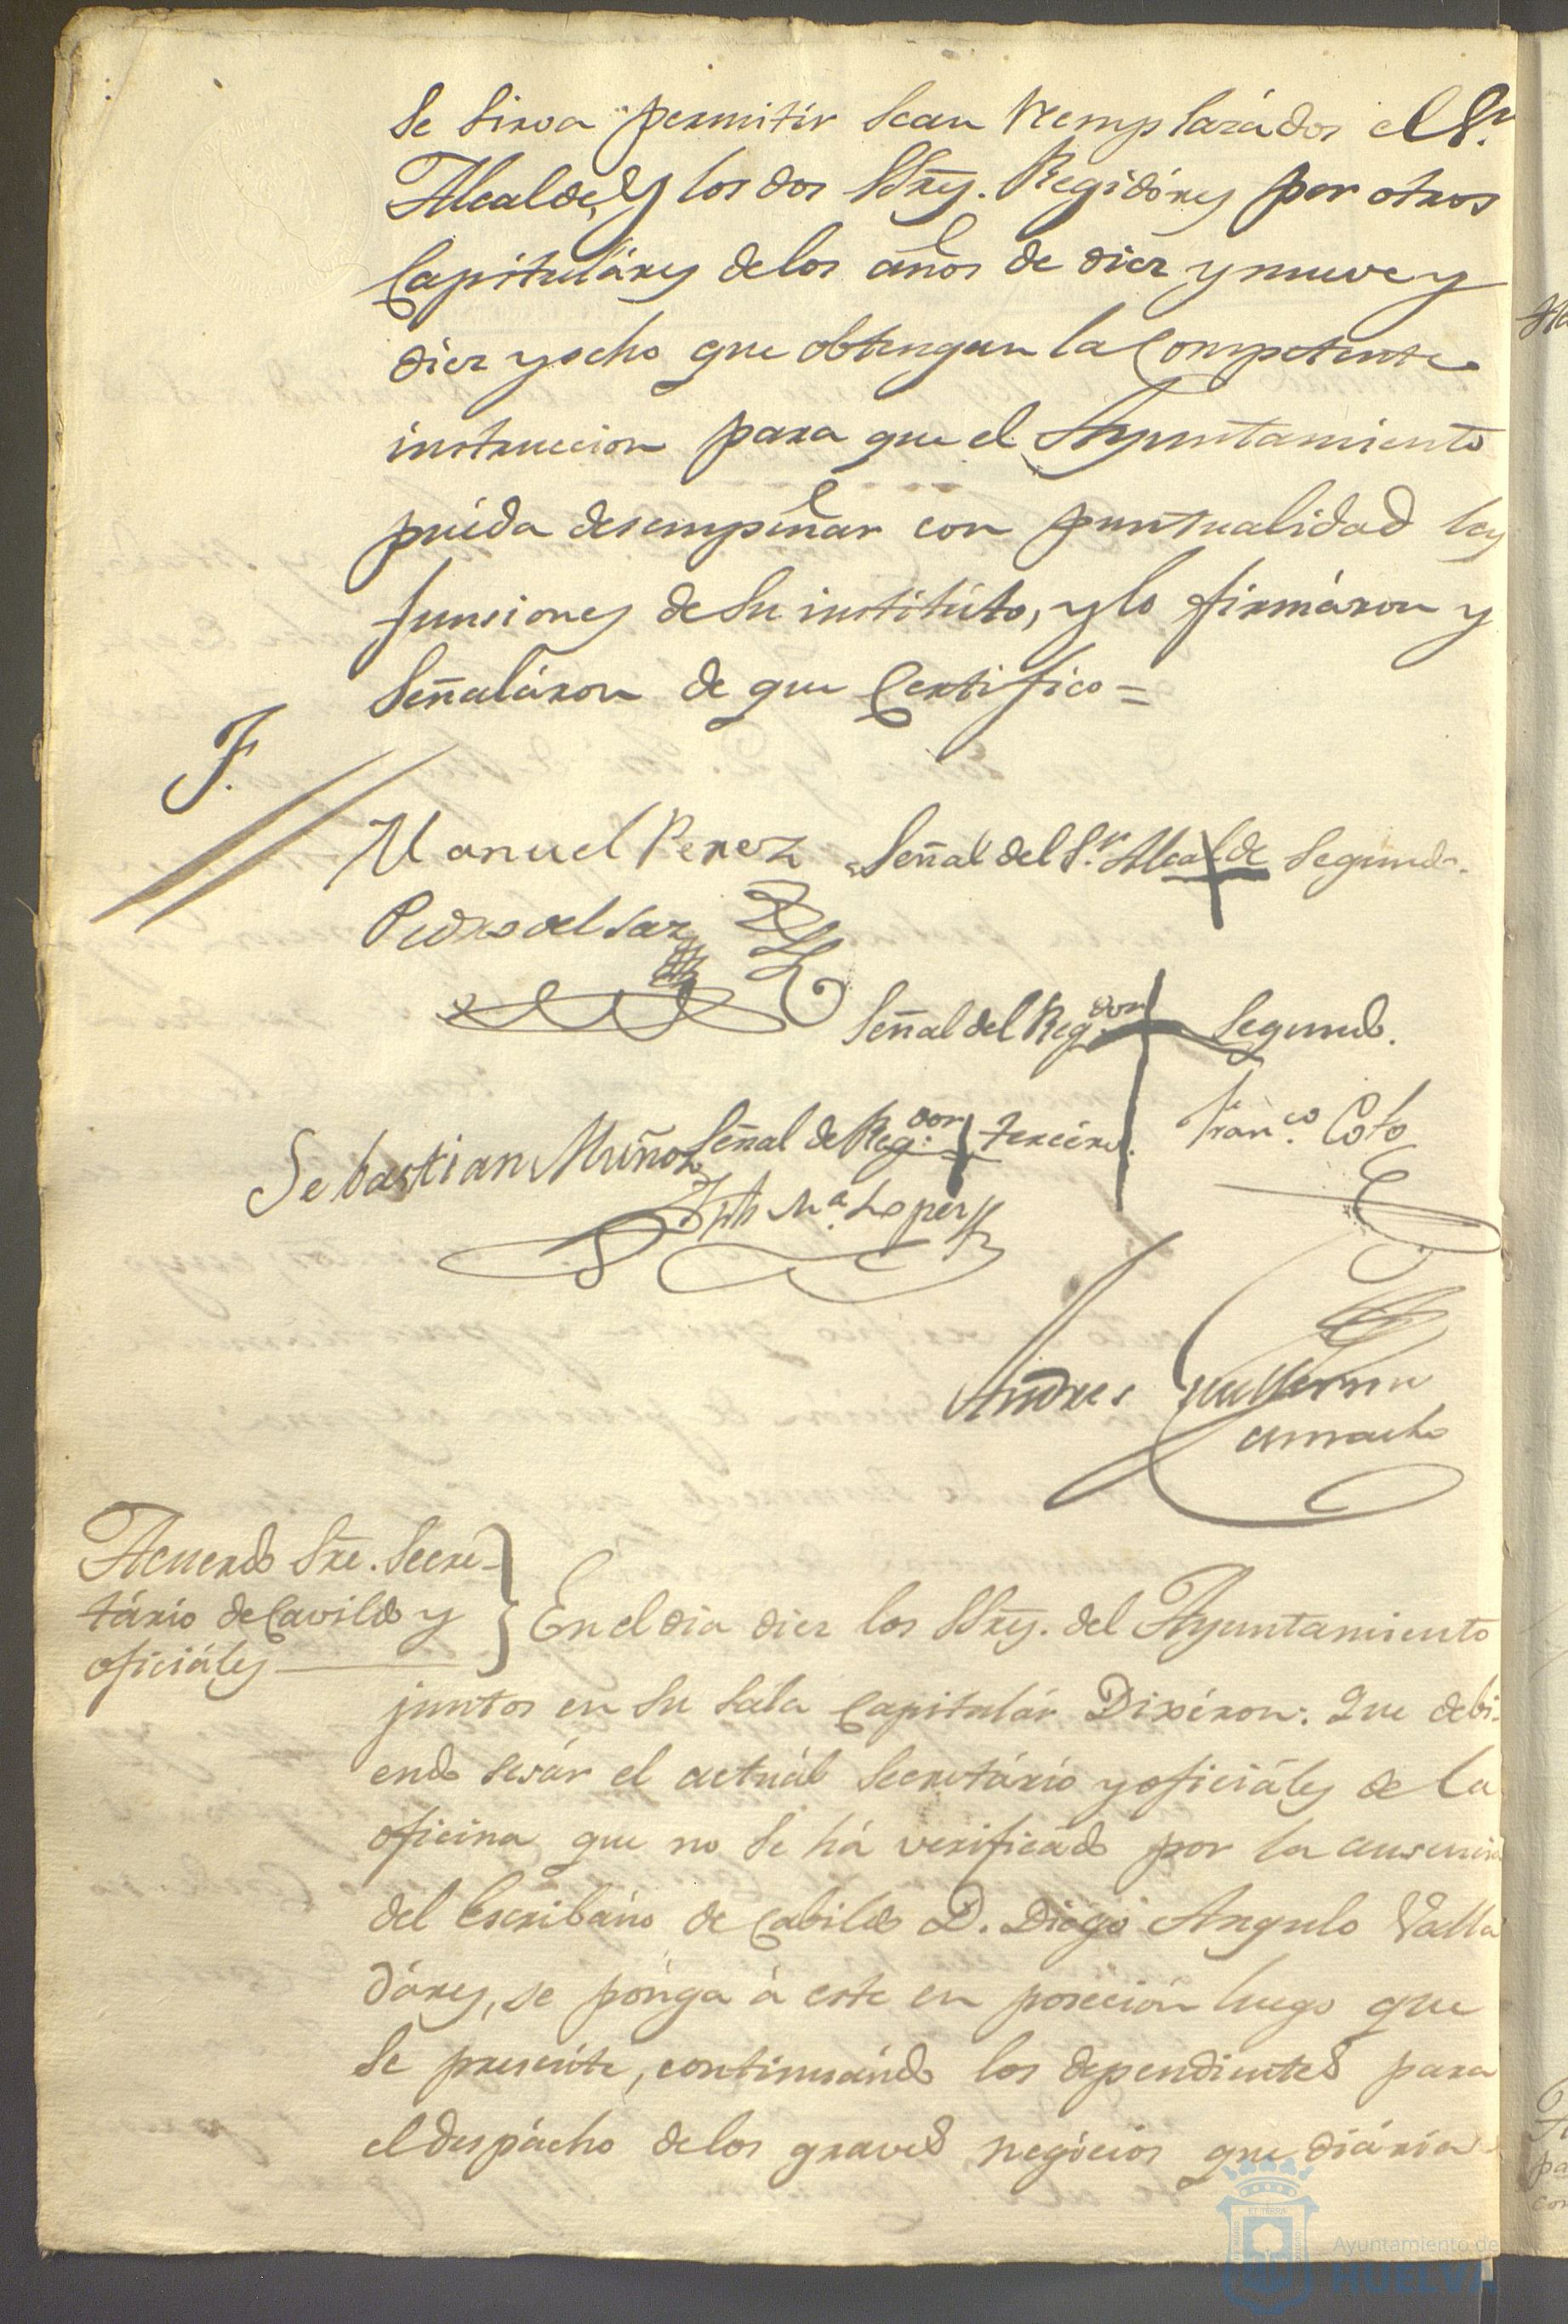 Se Sirva permitir Sean Remplazádos el Sr.
Alcalde, y los dos SSres. Regidóres por otros
Capituláres delos años de diez y nueve y
diez y ocho que obtengan la Competente
instruccion para que el Ayuntamiento
puéda desempeñar con puntualidad las
funsiones de Su institúto, y lo firmáron y
Señaláron de que Certifico =
F.
Manuel Perez Señal del Sr. Alcalde Segundo.
Pedro del Saz
Señal del Regdor Segundo.
Sebastian Muñoz Señal de Regdor: tercéro. Franco. Coto
Ma. Lopez
Andres Guillermo
Camacho
Acuerdo Sre. Secre-
tário de Cavildo y
oficiáles
En el dia diez los SSres. del Ayuntamiento
juntos en Su Sala Capitulár Dixéron: Que debi-
endo sesár el actuál Secretário y oficiáles de la
oficina que no Se há verificádo por la ausencia
del Escribáno de Cabildo D. Diego Angulo Valla
dáres, se pónga á este en poseción luego que
Se presénte, continuándo los dependientes para
el despácho delos graves negócios que diária-
Ayuntamiento de
HUELVA